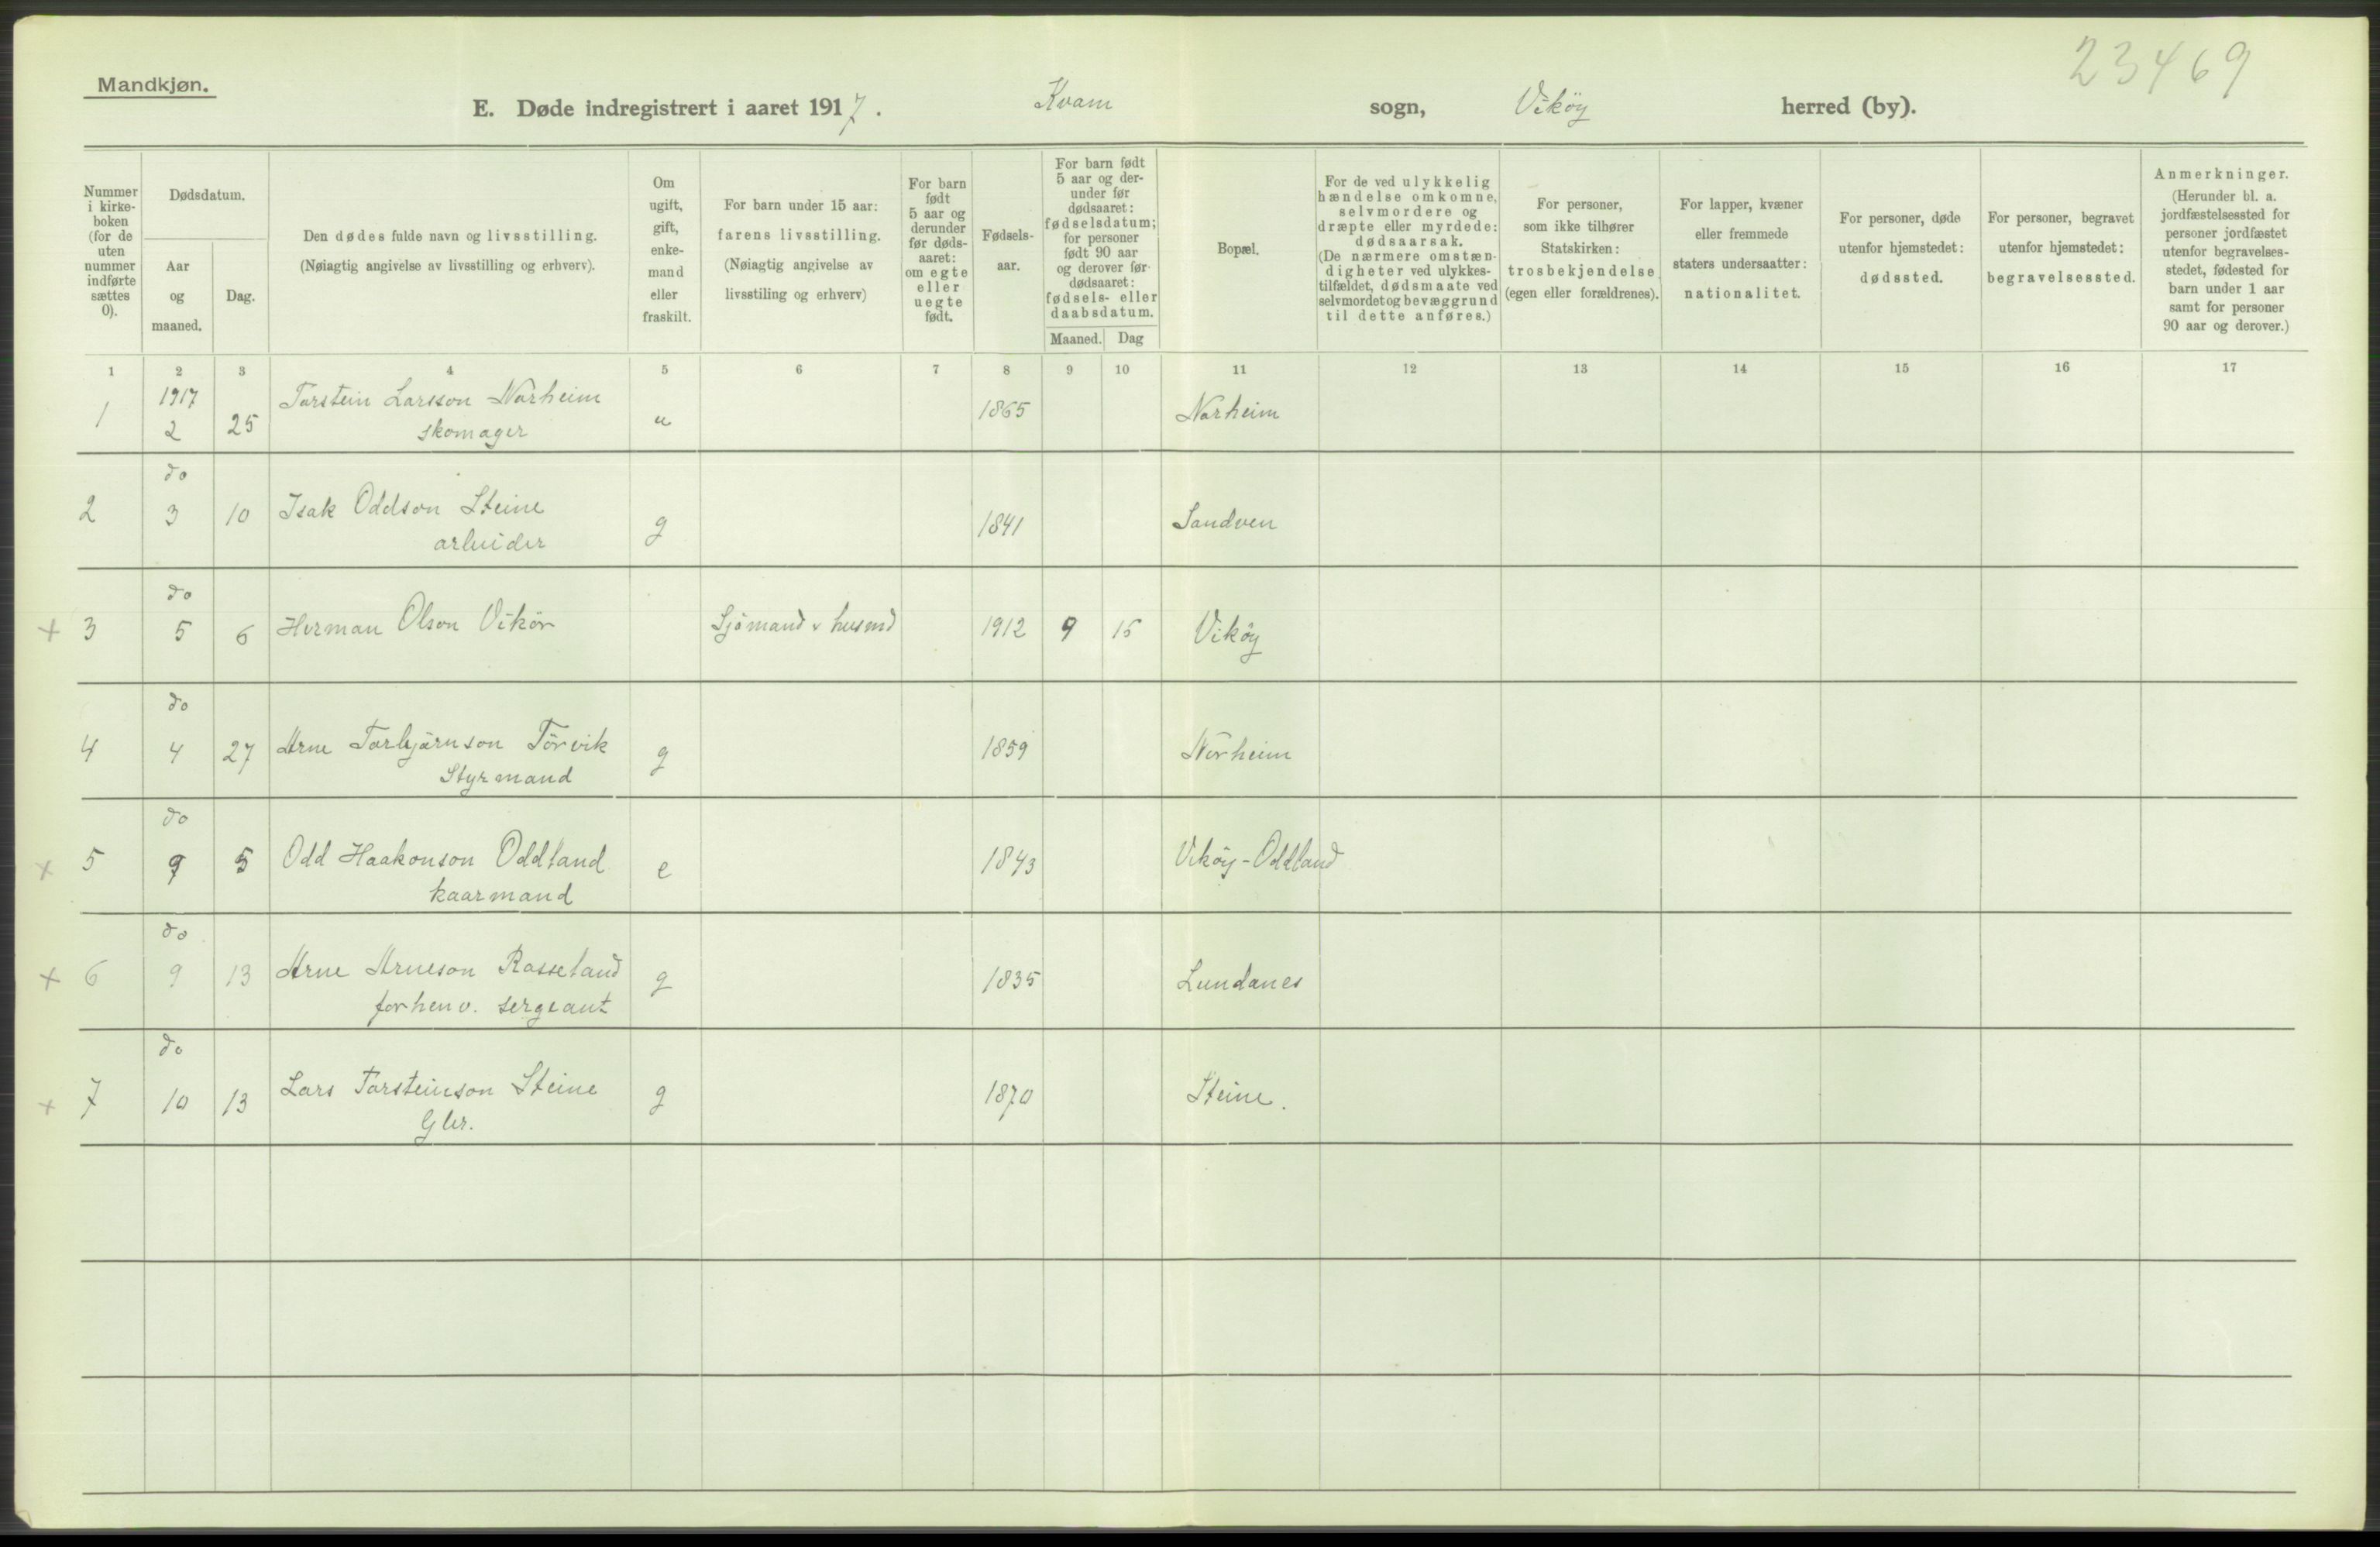 23469
Mandkjøn.
E. Døde indregistrert i aaret 1917. Kvam sogn, Viköy herred (by).
Nummer i kirke-boken (for de uten nummer indførte sættes 0).
Dødsdatum.
Aar og maaned.
Dag.
Den dødes fulde navn og livsstilling.
(Nøiagtig angivelse av livsstilling og erhverv).
Om ugift, gift, enke-mand eller fraskilt.
For barn under 15 aar: farens livsstilling.
(Nøiagtig angivelse av livsstiling og erhverv)
For barn født 5 aar og derunder før døds-aaret: om egte eller uegte født.
Fødsels-aar.
For barn født 5 aar og der-under før dødsaaret: fødselsdatum; for personer født 90 aar og derover før dødsaaret: fødsels- eller daabsdatum.
Maaned. Dag
Bopæl.
For de ved ulykkelig hændelse omkomne, selvmordere og dræpte eller myrdede: dødsaarsak.
(De nærmere omstæn-digheter ved ulykkes-tilfældet, dødsmaate ved selvmordet og bevæggrund til dette anføres.)
For personer, som ikke tilhører Statskirken: trosbekjendelse (egen eller forældrenes).
For lapper, kvæner eller fremmede staters undersaatter: nationalitet.
For personer, døde utenfor hjemstedet: dødssted.
For personer, begravet utenfor hjemstedet: begravelsessted.
Anmerkninger.
(Herunder bl. a. jordfæstelsessted for personer jordfæstet utenfor begravelses-stedet, fødested for barn under 1 aar samt for personer 90 aar og derover.)
1 2 3 4 5 6 7 8 9 10 11 12 13 14 15 16 17
1917
1 2 25 Torstein Larsson Norheim u 1865 Norheim
skomager
do
2 3 10 Isak Oddson Steine g 1841 Sandven
arbeider
do
+ 3 5 6 Herman Olson Vikör Sjömand & husmd 1912 9 15 Viköy
do
4 4 27 Arne Torbjörnson Törvik g 1859 Norheim
Styrmand
do
+ 5 9 5 Odd Haakonson Oddland e 1843 Viköy-Oddland
kaarmand
do
+ 6 9 13 Arne Arneson Rosseland g 1835 Lundanes
forhenv. sergeant
do
+ 7 10 13 Lars Torsteinson Steine g 1870 Steine.
Gbr.